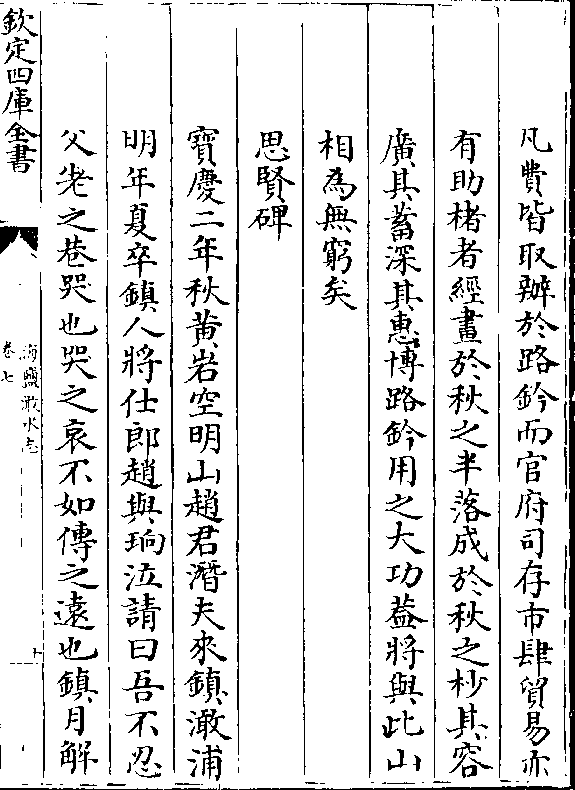 凡費皆取辦於路鈐而官府司存市肆貿易亦
有助楮者經畫於秋之半落成於秋之杪其容
廣其蓄深其惠博路鈐用之大功葢將與此山
相為無窮矣
思賢碑
寶慶二年秋黄岩空明山趙君潛夫來鎮澉浦
明年夏卒鎮人將仕郎趙與珦泣請曰吾不忍
父老之巷哭也哭之哀不如傳之遠也鎮月解
欽定四庫全書
海鹽澉水志
卷七
十